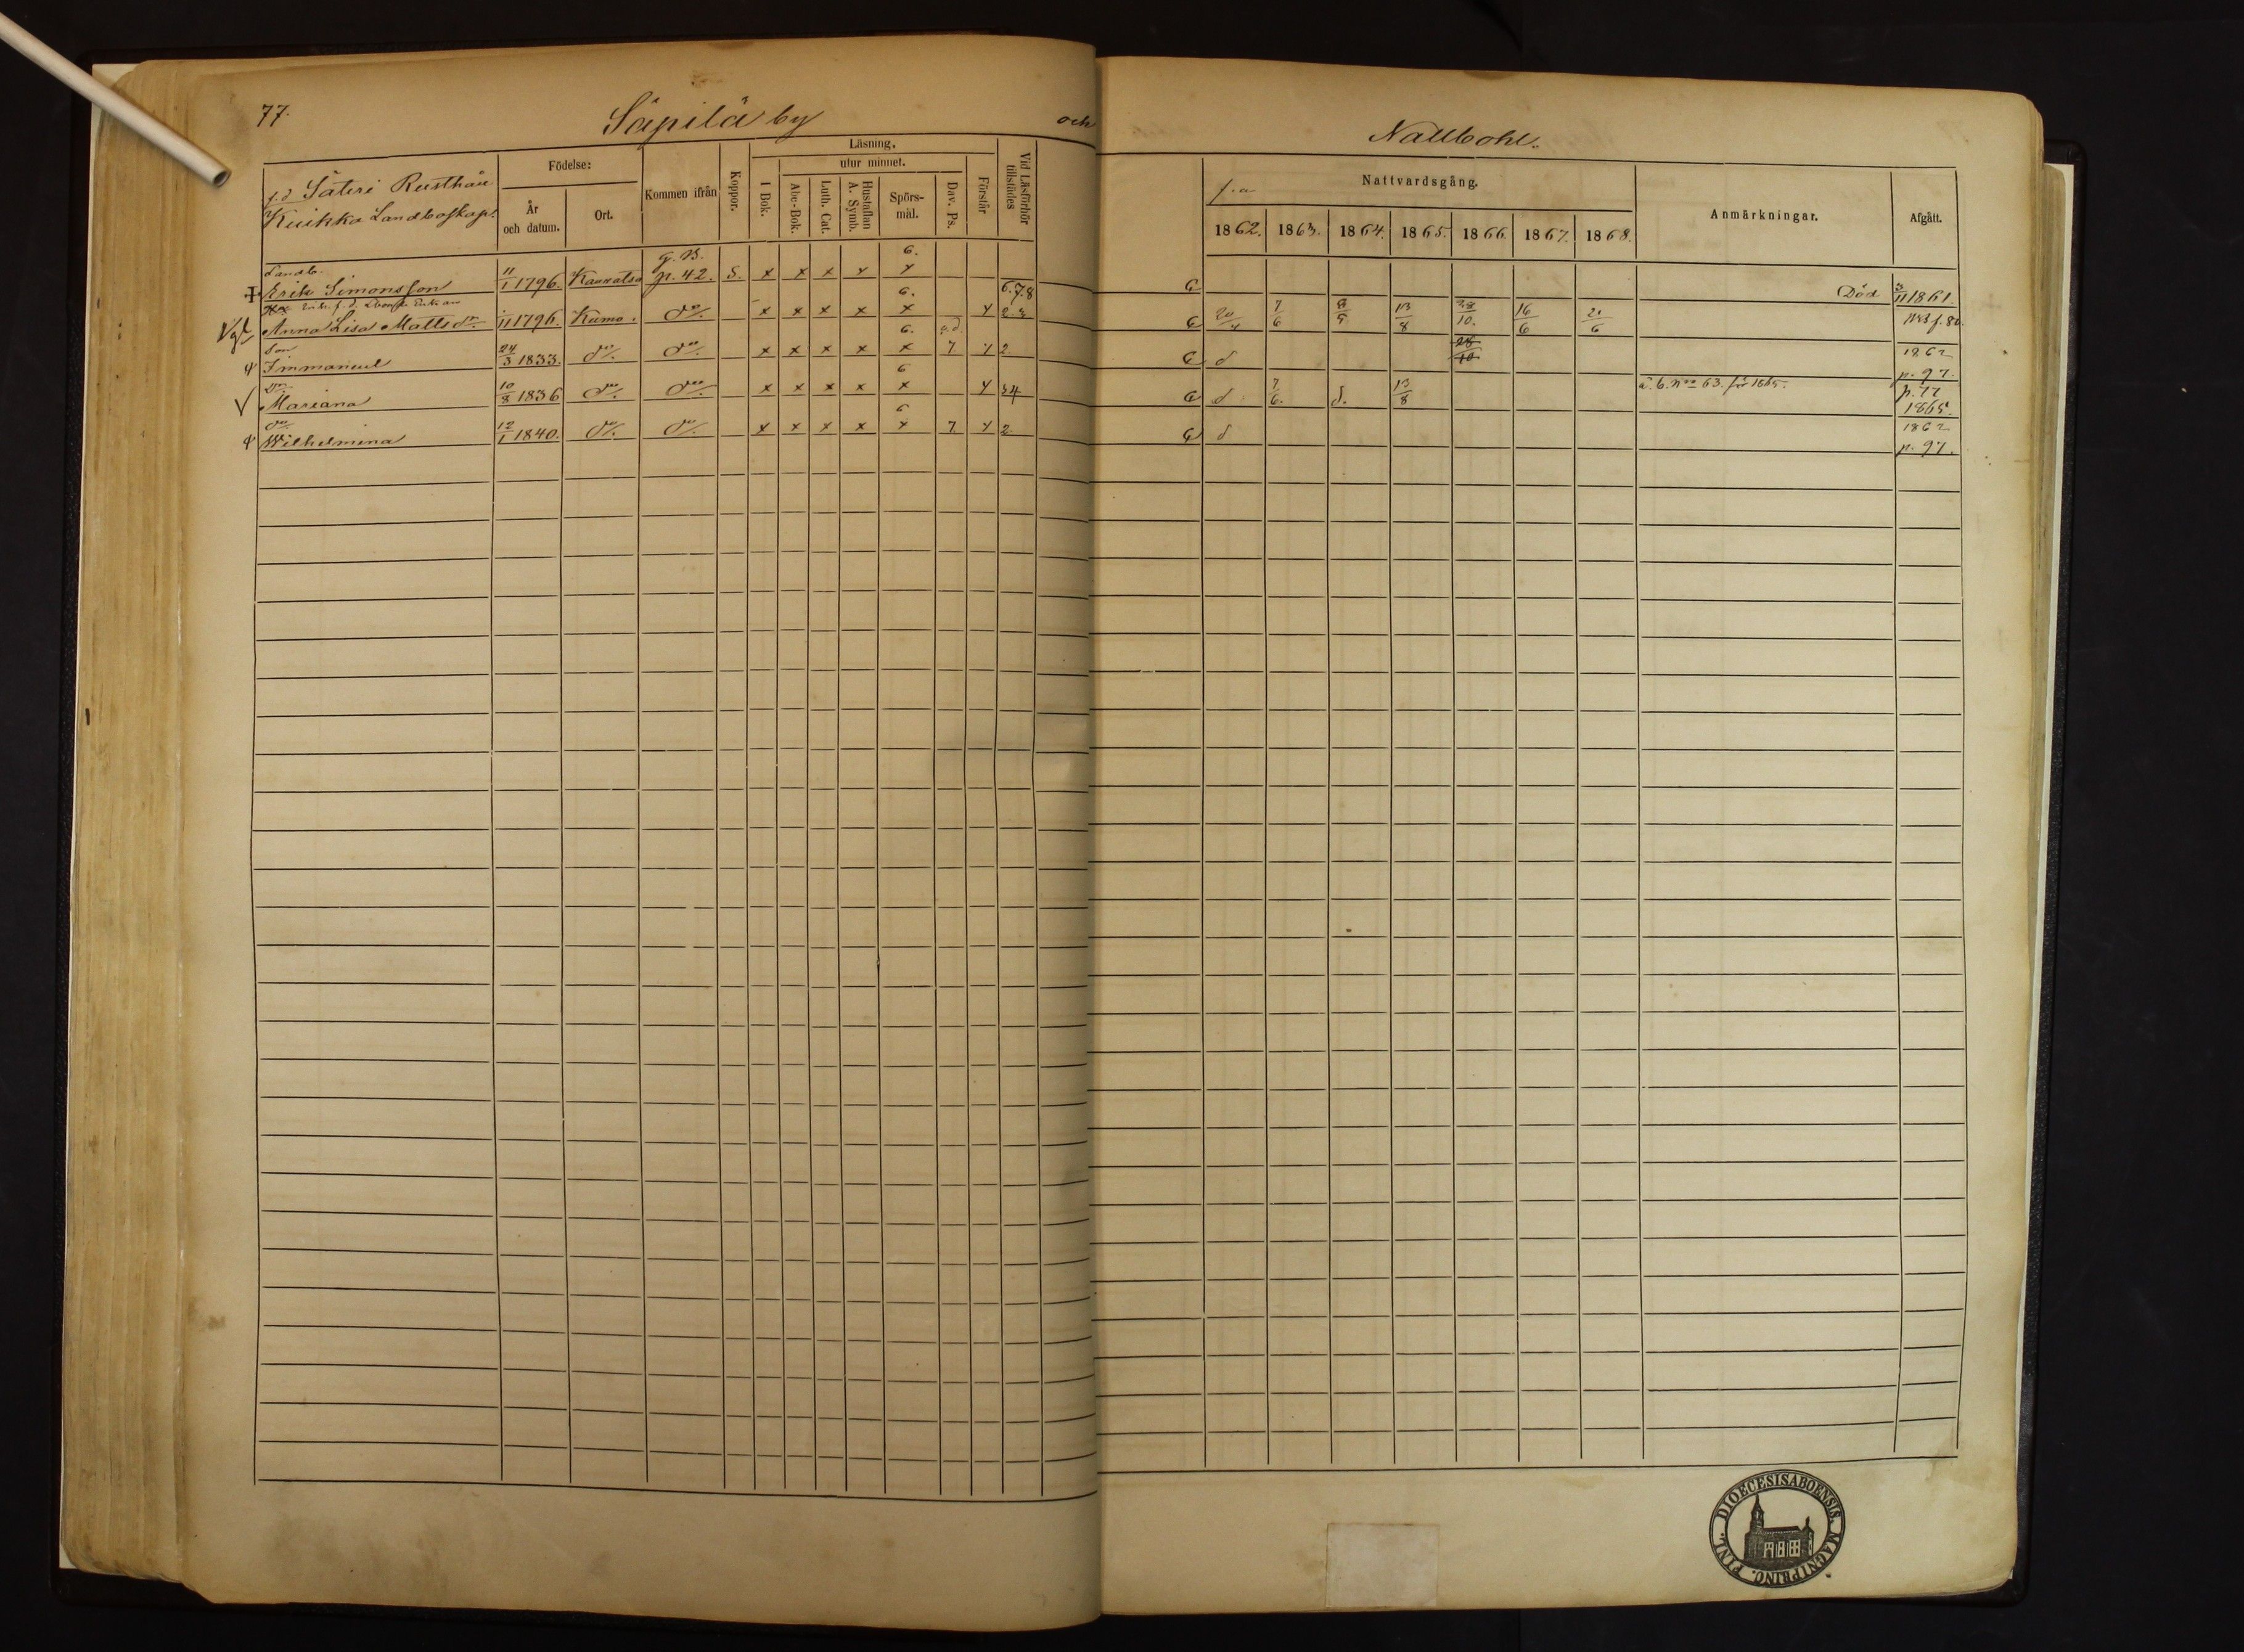 77.
Säpilä by
och
Nallbohl.
f.d Säteri Rusthåll
Kuikka Landboskap.
Födelse:
År och datum.
Ort.
Kommen ifrån
Koppor.
Läsning.
I Bok.
utur minnet.
Abc-Bok.
Luth. Cat.
Hustaflan A. Symb.
Spörs-mål.
Dav. Ps.
Förstår
Vid Läsförhör tillstädes
f.a
Nattvardsgång.
1862. 1863. 1864. 1865. 1866. 1867. 1868.
Anmärkningar.
Afgått.
Landb.
Erik Simonsson 11/1 1796. Kauvatsa g. B. p. 42. S. x x x x 6. x 6.7.8 G Död 3/11 1861.
Anna Lisa Mattsdr. 1/11 1796. Kumo. do. x x x x 6. x 4 2.3 G 20/4 7/6 13/8 28/10. 16/6 21/6
Son
Immanuel 24/3 1833. do. do. x x x x 6. x 7 4 2 G d 28/10 1862 p. 97.
Dr.
Mariana 10/8 1836 do. do. x x x x 6 x 4 34 G d 7/6. d. 13/8 a. b. no 63. för 1865. p. 77 1865.
do.
Wilhelmina 12/1 1840. do. do. x x x x 6 x 7. 4 2. G d 1862 p. 97.
DIOECESIS ABOENSIS. MAGNI PRINC. FINL.